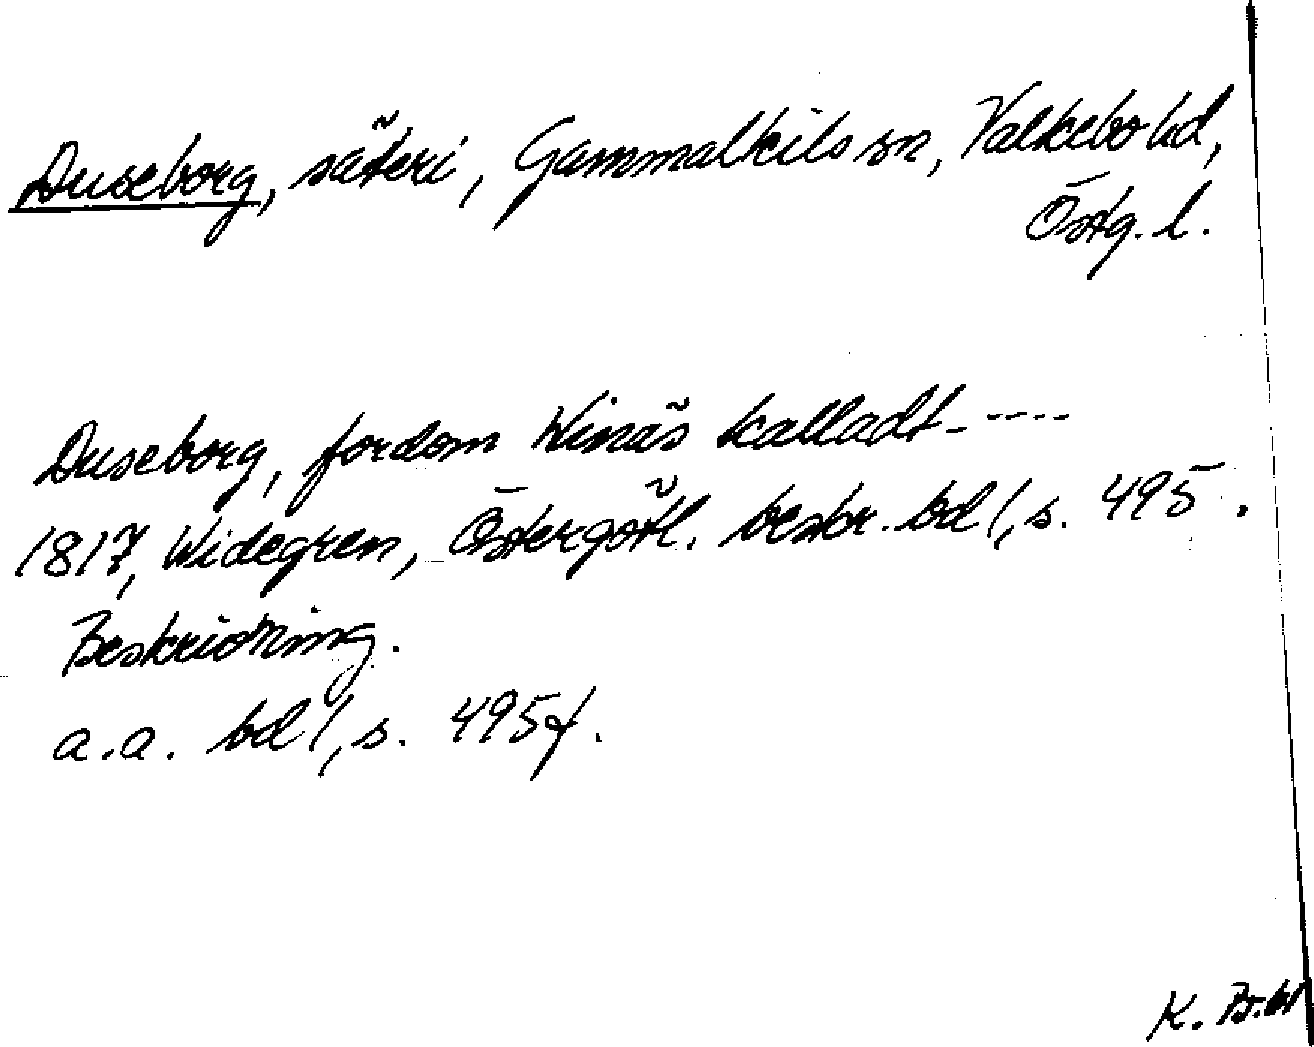 Duseborg, säteri, Gammalkils sn, Valkebo hd,
Östg. l.
Duseborg, fordom Winäs kalladt-----
1817, Widegren, Östergötl. beskr. bd 1, s. 495.
Beskrivning.
a.a. bd 1, s. 495f.
K.